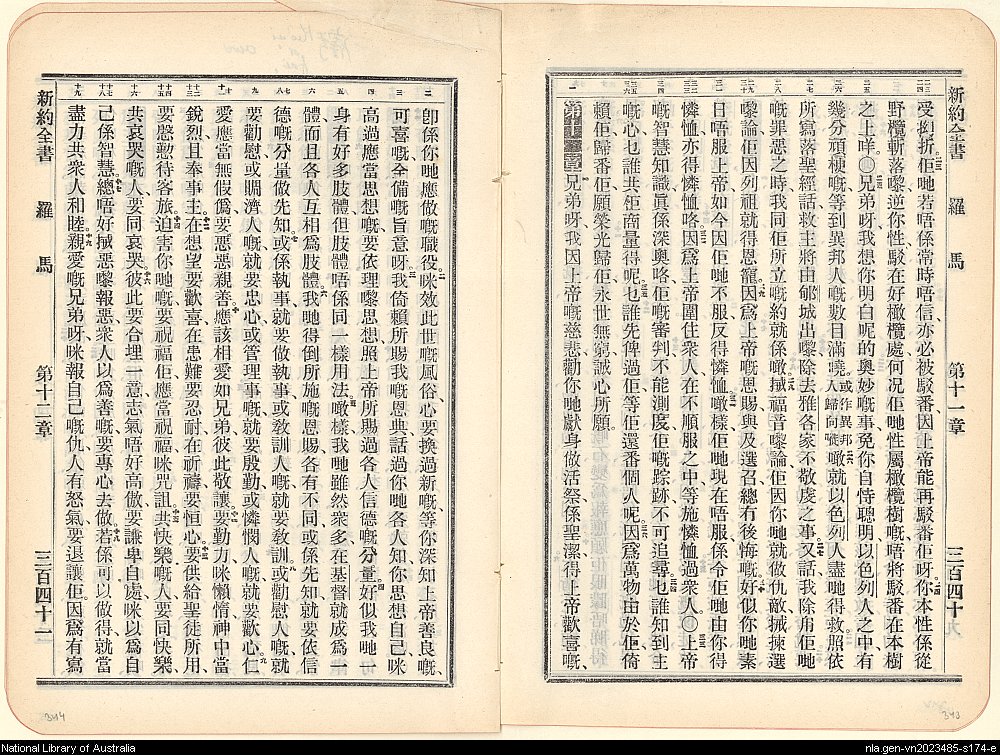 新約全書 羅馬 第十一章
受拗折佢哋若唔係常時唔信亦必被駁番因上帝能再駁番佢呀你本性係從
野欖斬落嚟逆你性駁在好橄欖處何况佢哋性屬橄欖樹嘅唔將駁番在本樹
之上咩〇兄弟呀我想你明白呢的奧妙嘅事免你自恃聰明以色列人之中有
幾分頑梗嘅等到異邦人嘅數目滿嘵或作異邦人歸向嘵噉就以色列人盡哋得救照依
所寫落聖經話救主將由郇城出嚟除去雅各家不敬虔之事又話我除角佢哋
嘅罪惡之時我同佢所立嘅約就係噉拭福音嚟論佢因你哋就做仇敵拭揀選
嚟論佢因列祖就得恩寵因爲上帝嘅恩賜與及選召總冇後悔嘅好似你哋素
日唔服上帝如今因佢哋不服反得憐恤噉樣佢哋現在唔服係令佢哋由你得
憐恤亦得憐恤咯因爲上帝圍住衆人在不順服之中等施憐恤過衆人〇上帝
嘅智慧知識眞係深奧咯佢嘅審判不能測度佢嘅踪跡不可追尋乜誰知到主
嘅心乜誰共佢商量得呢乜誰先俾過佢等佢還番個人呢因爲萬物由於佢倚
賴佢歸番佢願榮光歸佢永世無窮誠心所願
第十二章兄弟呀我因上帝嘅慈悲勸你哋獻身做活祭係聖潔得上帝歡喜嘅
卽係你哋應做嘅職役咪效此世嘅風俗心要換過新嘅等你深知上帝善良嘅
可喜嘅全備嘅旨意呀我倚賴所賜我嘅恩典話過你哋各人知你思想自己咪
高過應當思想嘅要依理嚟思想照上帝所賜過各人信德嘅分量好似我哋一
身有好多肢體但肢體唔係同一樣用法噉樣我哋雖然衆多在基督就成爲一
體而且各人互相爲肢體我哋得倒所施嘅恩賜各有不同或係先知就要依信
德嘅分量做先知或係執事就要做執事或敎訓人嘅就要敎訓或勸慰人嘅就
要勸慰或賙濟人嘅就要忠心或管理事嘅就要殷勤或憐憫人嘅就要歡心仁
愛應當無假僞要惡惡親善應該相愛如兄弟彼此敬讓要勤力咪懶惰神中當
銳烈且奉事主在想望要歡喜在患難要忍耐在祈禱要恒心要供給聖徒所用
要慇懃待客旅迫害你哋嘅要祝福佢應當祝福咪咒詛共快樂嘅人要同快樂
共哀哭嘅人要同哀哭彼此要合埋一意志氣唔好高傲要謙卑自處咪以爲自
己係智慧總唔好拭惡嚟報惡衆人以爲善嘅要專心去做若係可以做得就當
盡力共衆人和睦親愛嘅兄弟呀咪報自己嘅仇人有怒氣要退讓佢因爲有寫
新約全書 羅馬 第十二章
National Library of Australia
nla.gen-vn2023485-s174-e